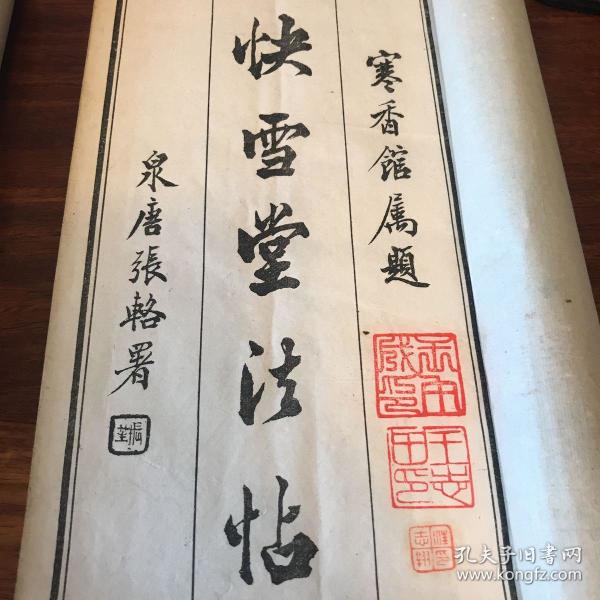 寒香馆属题
快雪堂法帖
泉唐張輅署
孔夫子旧书网
www.kongfz.com